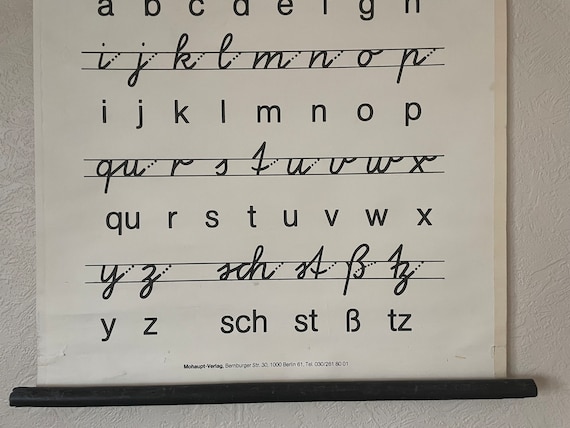 a b c d e f g h
i j k l m n o p
i j k l m n o p
qu r s t u v w x
qu r s t u v w x
y z sch st ß tz
y z sch st ß tz
Mohaupt-Verlag, Bernburger Str. 30, 1000 Berlin 61, Tel. 030/261 80 01